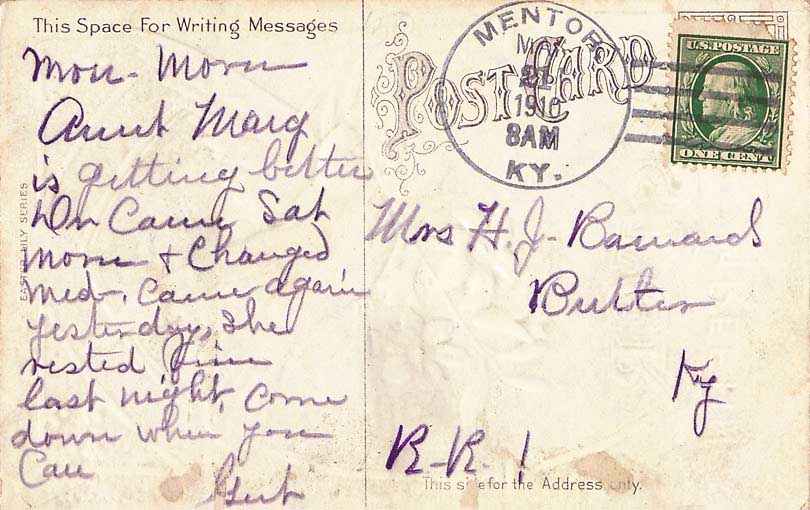 This Space For Writing Messages
Mon - Morn
Aunt Marg
is getting better
Dr Came Sat
morn + Changed
med - Came again
yesterday, She
rested fine
last night, Come
down when you
Can
Gert
EASTER LILY SERIES
POST CARD
MENTOR
21
1910
8AM
KY.
U.S. POSTAGE
ONE CENT
Mrs H. J. Barnard
Butler
Ky
R-R. 1
This side for the Address only.